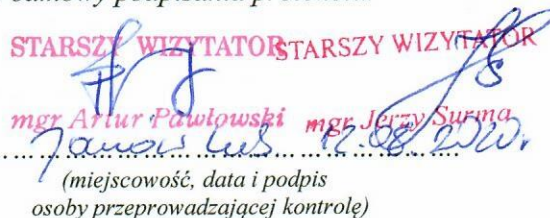 odmowy podpisania protokołu
STARSZY WIZYTATOR STARSZY WIZYTATOR
mgr Artur Pawłowski mgr Jerzy Surma
Janów Lub. 12.08.2020r.
(miejscowość, data i podpis
osoby przeprowadzającej kontrolę)